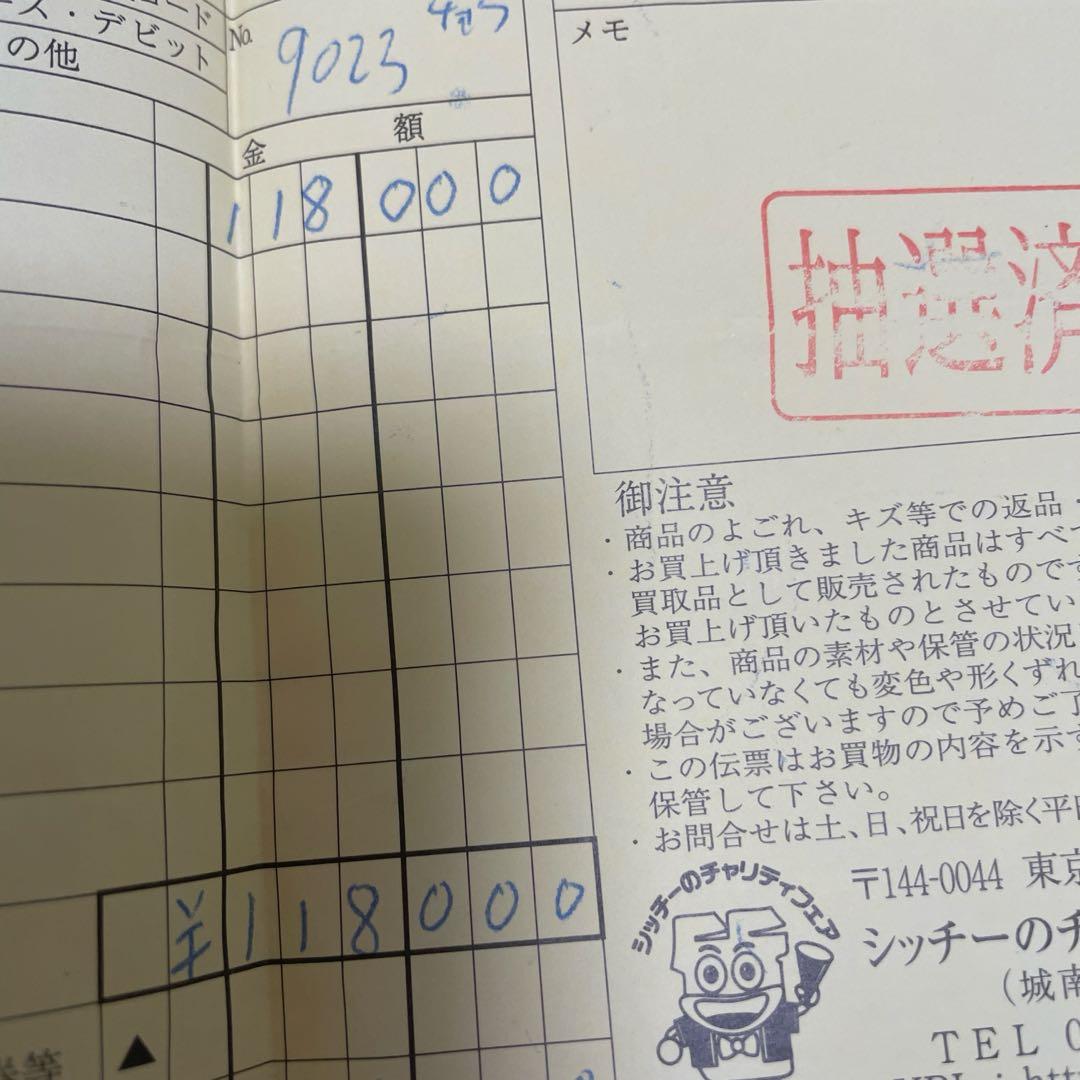 ード
ース・デビット
の他
No.
9023
金 額
118000
¥118000
▲
メモ
抽選済
御注意
・商品のよごれ、キズ等での返品・
・お買上げ頂きました商品はすべて
買取品として販売されたものです
お買上げ頂いたものとさせてい
・また、商品の素材や保管の状況
なっていなくても変色や形くずれ
場合がございますので予めご了
・この伝票はお買物の内容を示す
保管して下さい。
・お問合せは土、日、祝日を除く平日
シッチーのチャリティフェア
〒144-0044 東京
シッチーのチ
(城南
TEL 0